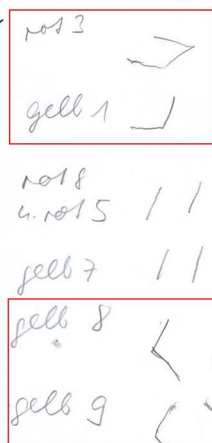 rot 3
gelb 1
rot 8
u. rot 5
gelb 7
gelb 8
gelb 9